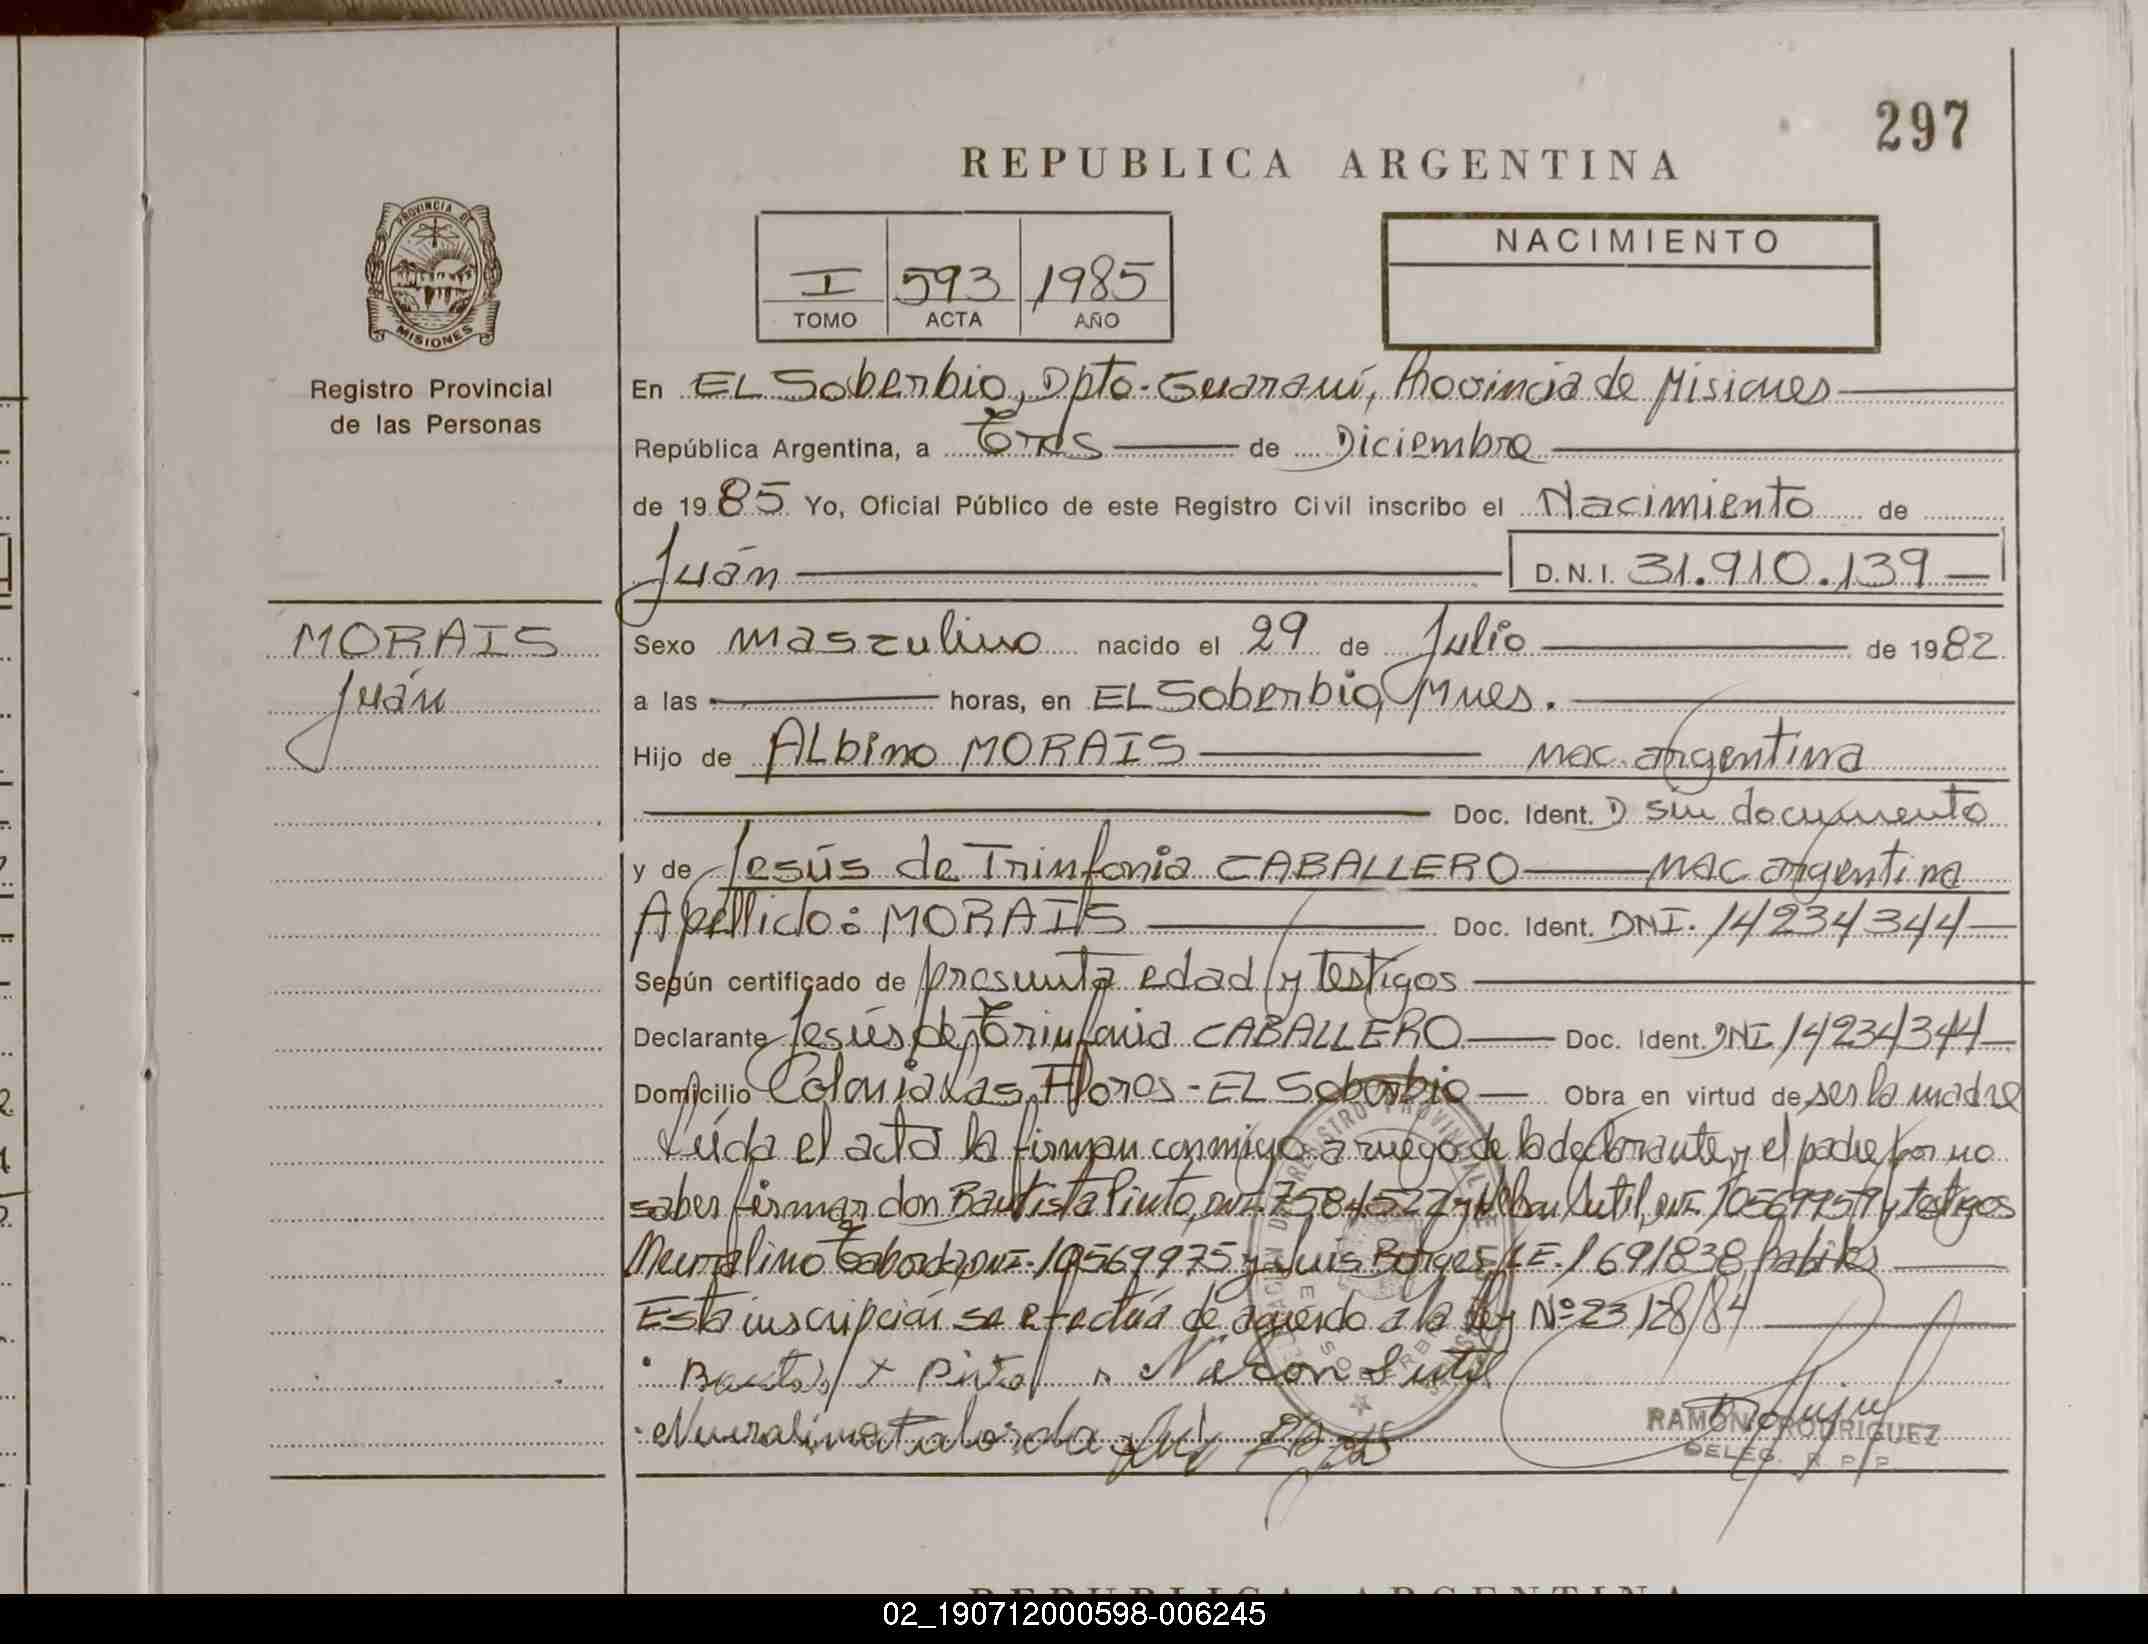 297
REPUBLICA ARGENTINA
PROVINCIA DE
MISIONES
Registro Provincial
de las Personas
NACIMIENTO
I 593 1985
TOMO ACTA AÑO
En EL Soberbio, Dpto. Guaraní, Provincia de Misiones
República Argentina, a Tres de Diciembre
de 1985 Yo, Oficial Público de este Registro Civil inscribo el Nacimiento de
Juán D.N.I. 31.910.139
MORAIS
Juán
Sexo masculino nacido el 29 de Julio de 1982
a las horas, en EL Soberbio, Mnes.
Hijo de ALbino MORAIS nac. argentina
Doc. Ident. D sin documento
y de Jesús de Trinfonia CABALLERO nac argentina
Apellido: MORAIS Doc. Ident. DNI. 14234344
Según certificado de presunta edad y testigos
Declarante Jesús de Trinfonia CABALLERO Doc. Ident. DNI 14234344
Domicilio Colonia Las Flores - EL Soberbio Obra en virtud de ser la madre
Leída el acta la firman conmigo a ruego de la declarante y el padre por no
saber firmar don Bautista Pinto, DNI. 7584522 y Sutil, DNI. 10569959 y testigos
Taborda DNI. 10569975 y Luis Borges, LE. 1691838, habiles
Esta inscripción se efectúa de acuerdo a la ley Nº 23128/84
Sutil
RAMON RODRIGUEZ
DELEG. R. P. P.
REPUBLICA ARGENTINA
02_190712000598-006245